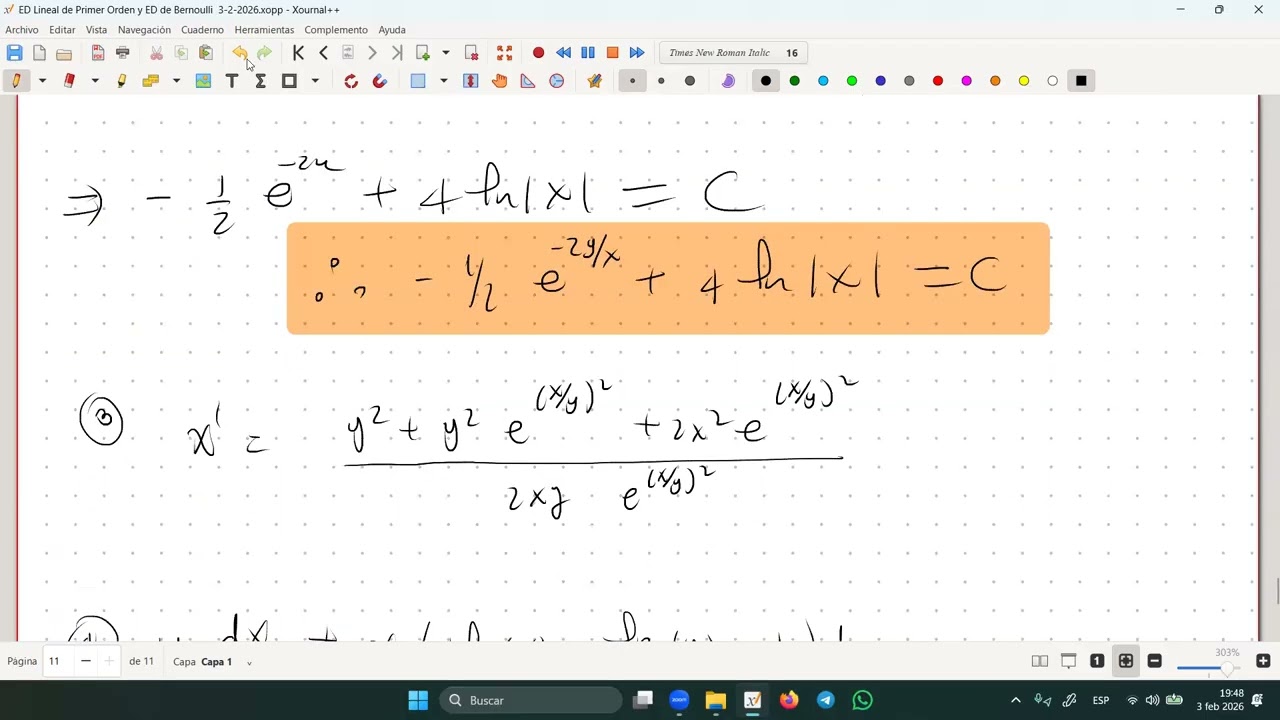 ED Lineal de Primer Orden y ED de Bernoulli 3-2-2026.xopp - Xournal++
Archivo Editar Vista Navegación Cuaderno Herramientas Complemento Ayuda
Times New Roman Italic 16
⇒ - 1/2 e^{-2u} + 4 ln|x| = C
∴ - 1/2 e^{-2y/x} + 4 ln|x| = C
③ x' = (y² + y² e^{(x/y)²} + 2x² e^{(x/y)²}) / (2xy e^{(x/y)²})
Página 11 de 11 Capa Capa 1
303%
Buscar
zoom
ESP
19:48
3 feb 2026